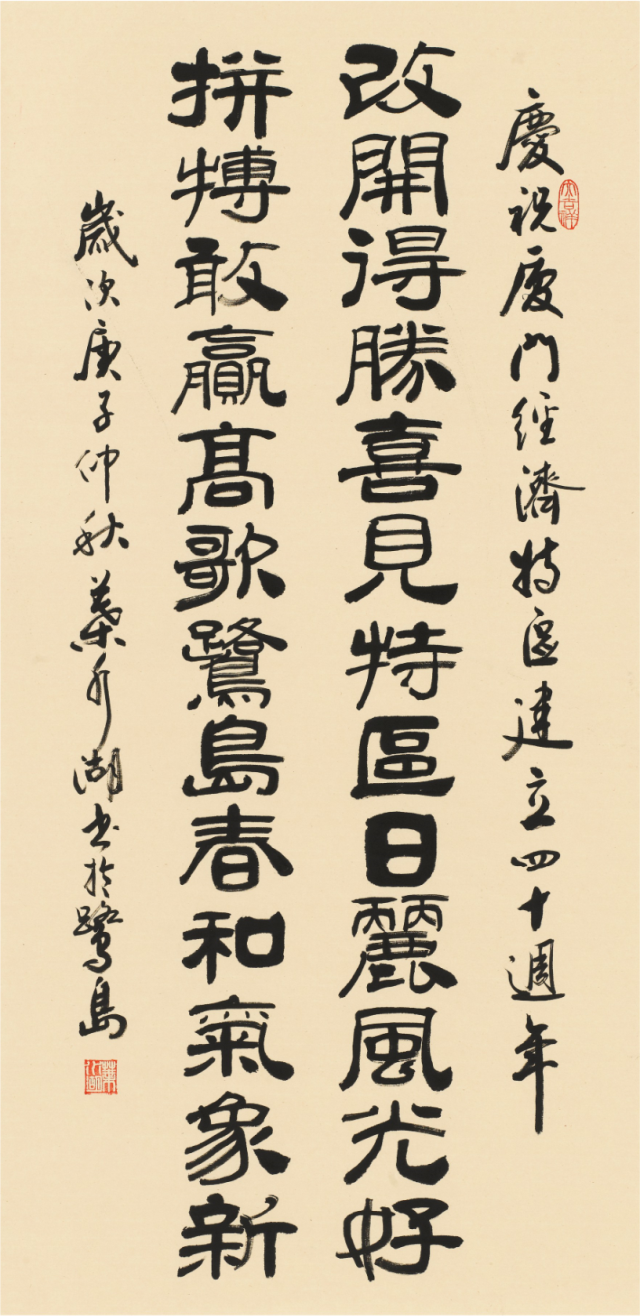 慶祝廈門經濟特區建立四十週年
改開得勝喜見特區日麗風光好
拼搏敢贏高歌鷺島春和氣象新
歲次庚子仲秋葉水湖書於鷺島